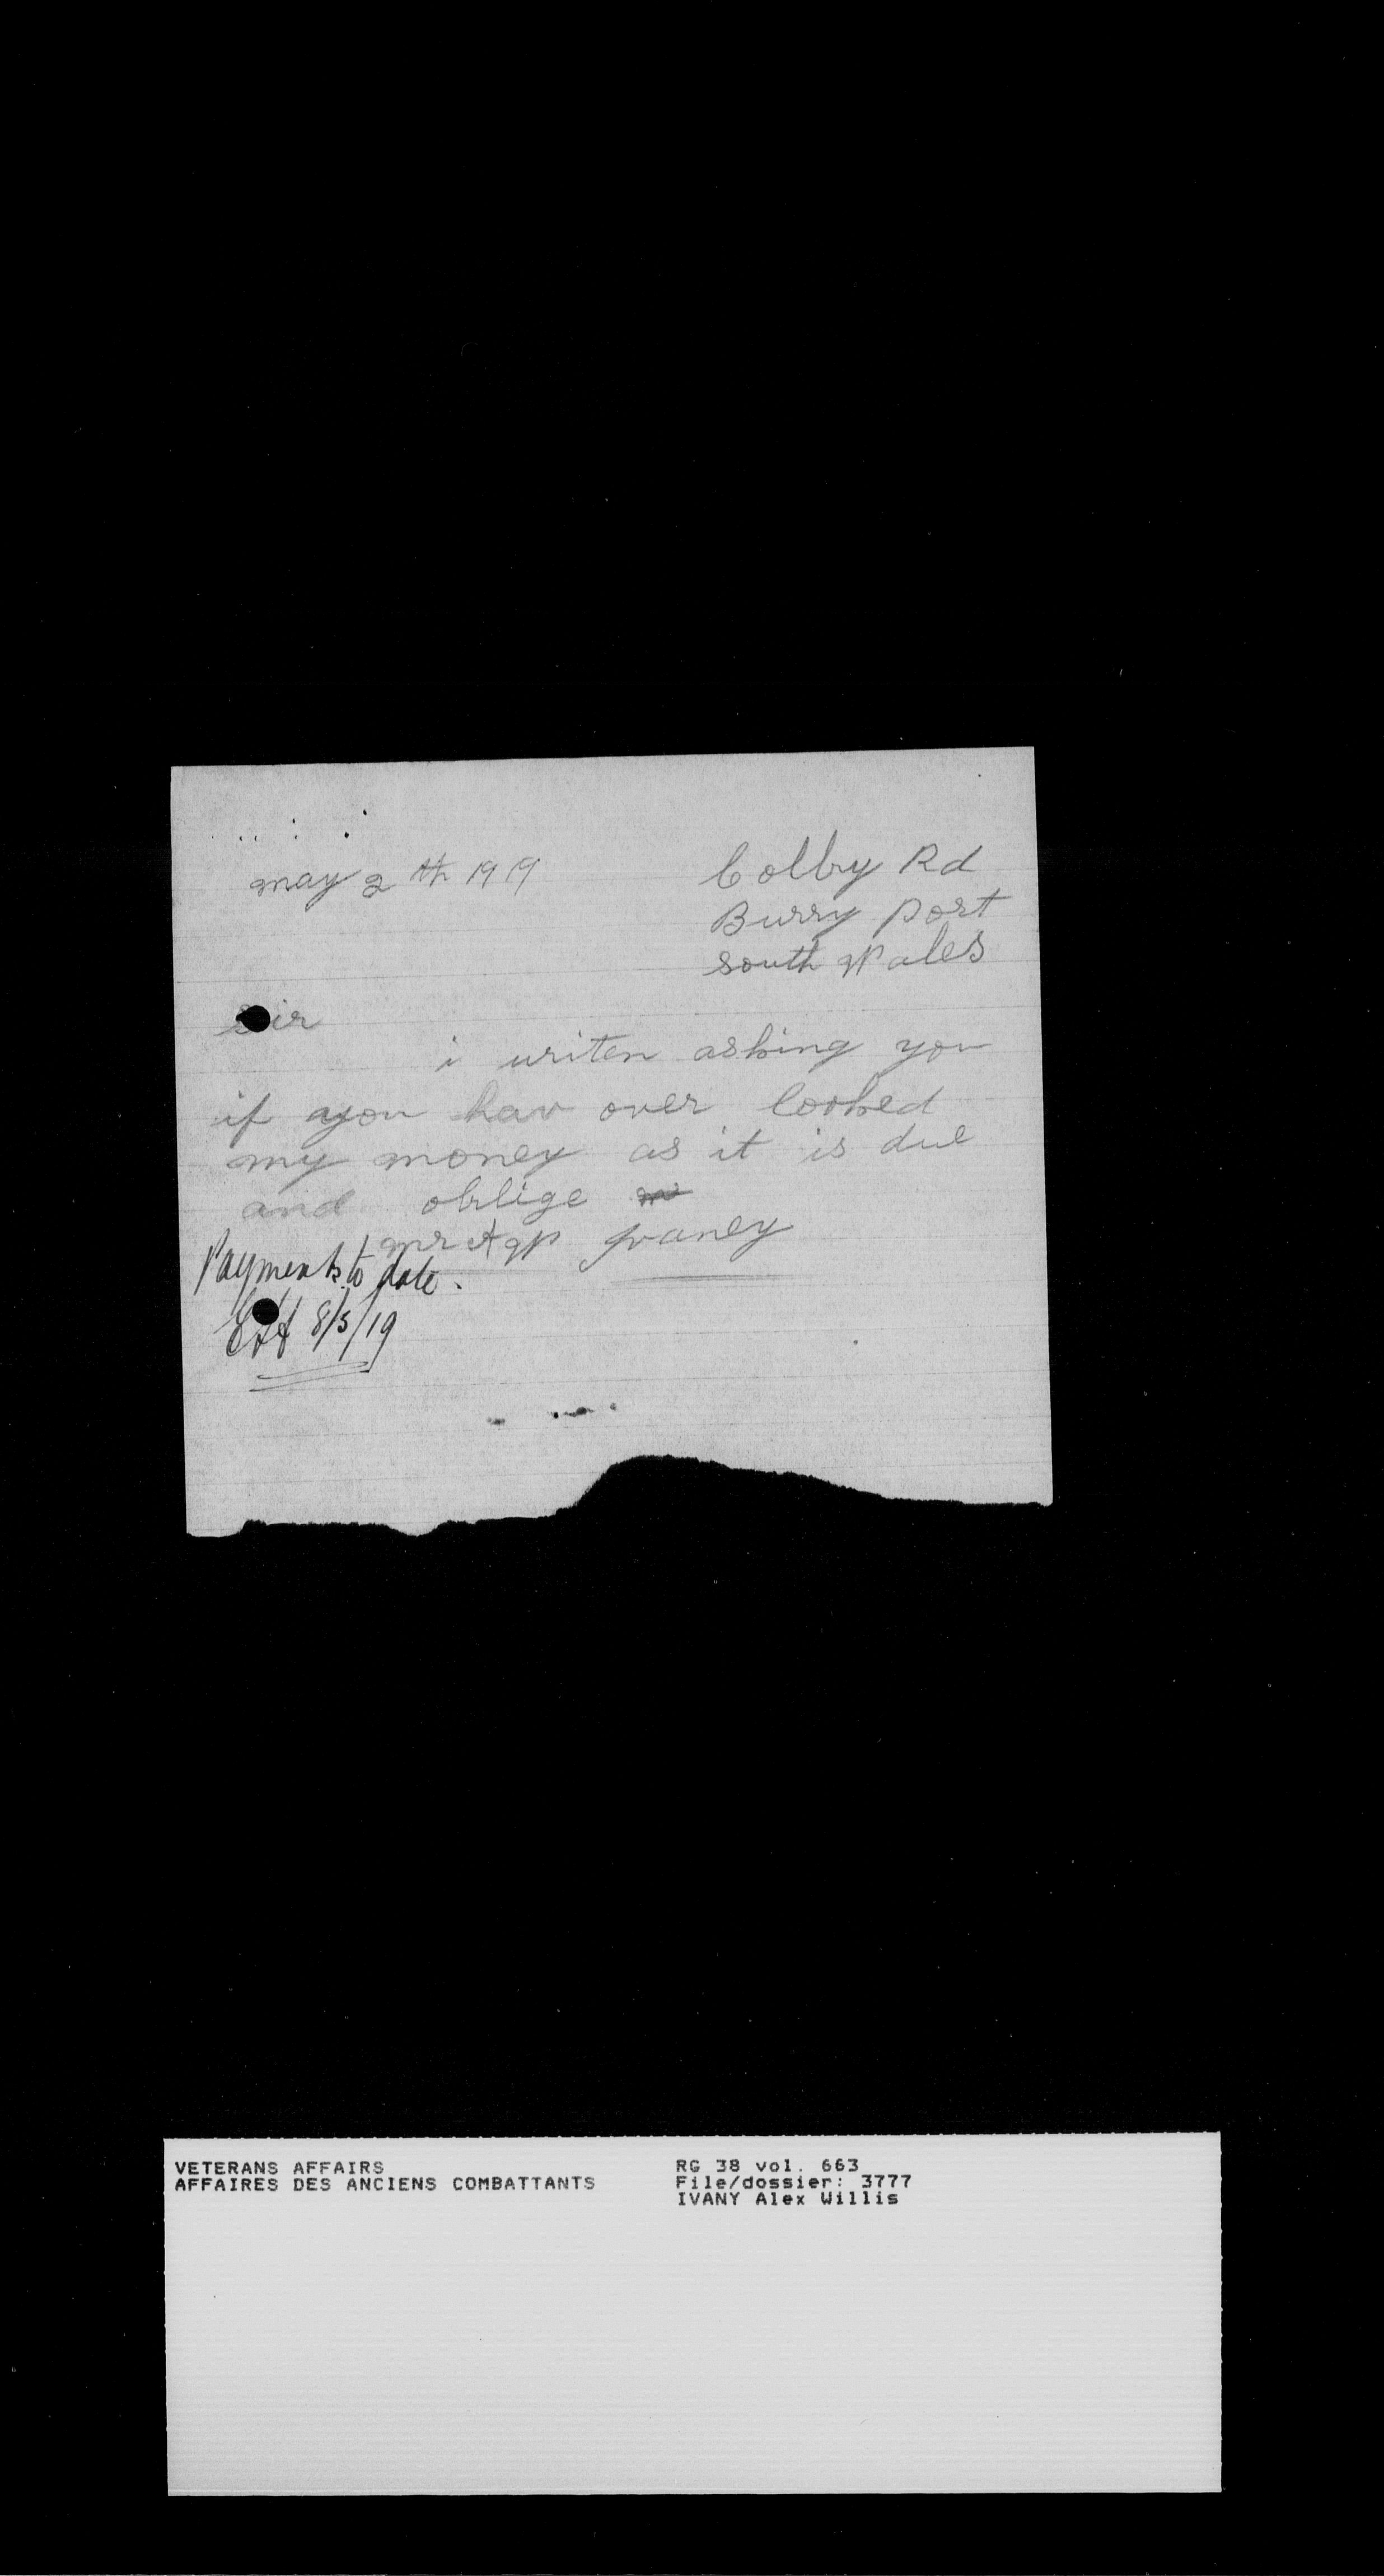 may 2th 1919
Colby Rd
Burry port
south Wales
sir
i writen asking you
if you hav over looked
my money as it is due
and oblige
mr A W Ivaney
Payments to date.
8/5/19
VETERANS AFFAIRS
AFFAIRES DES ANCIENS COMBATTANTS
RG 38 vol. 663
File/dossier: 3777
IVANY Alex Willis